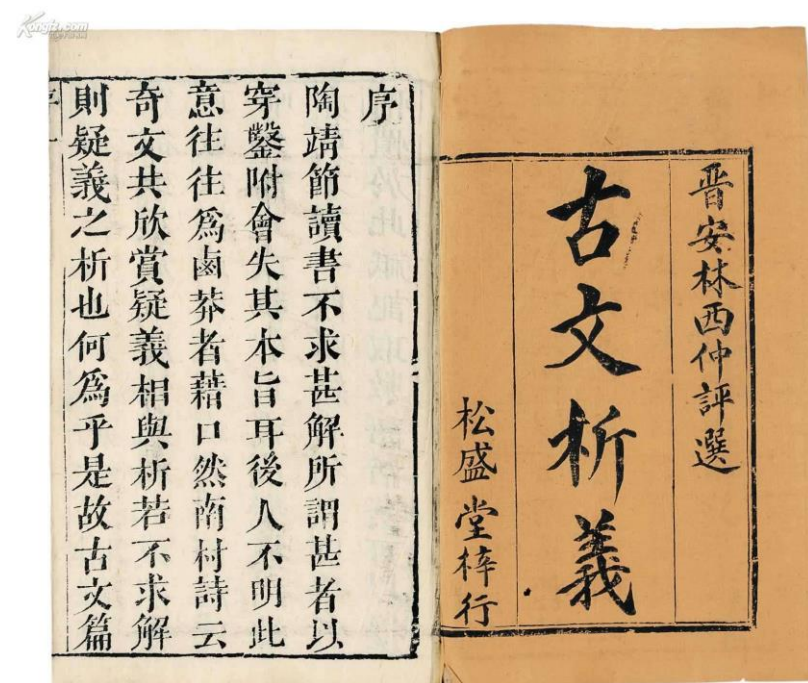 晋安林西仲評選
古文析義
松盛堂梓行
序
陶靖節讀書不求甚解所謂甚者以
穿鑿附會失其本旨耳後人不明此
意往往爲鹵莽者藉口然南村詩云
奇文共欣賞疑義相與析若不求解
則疑義之析也何爲乎是故古文篇
Kongfz.com